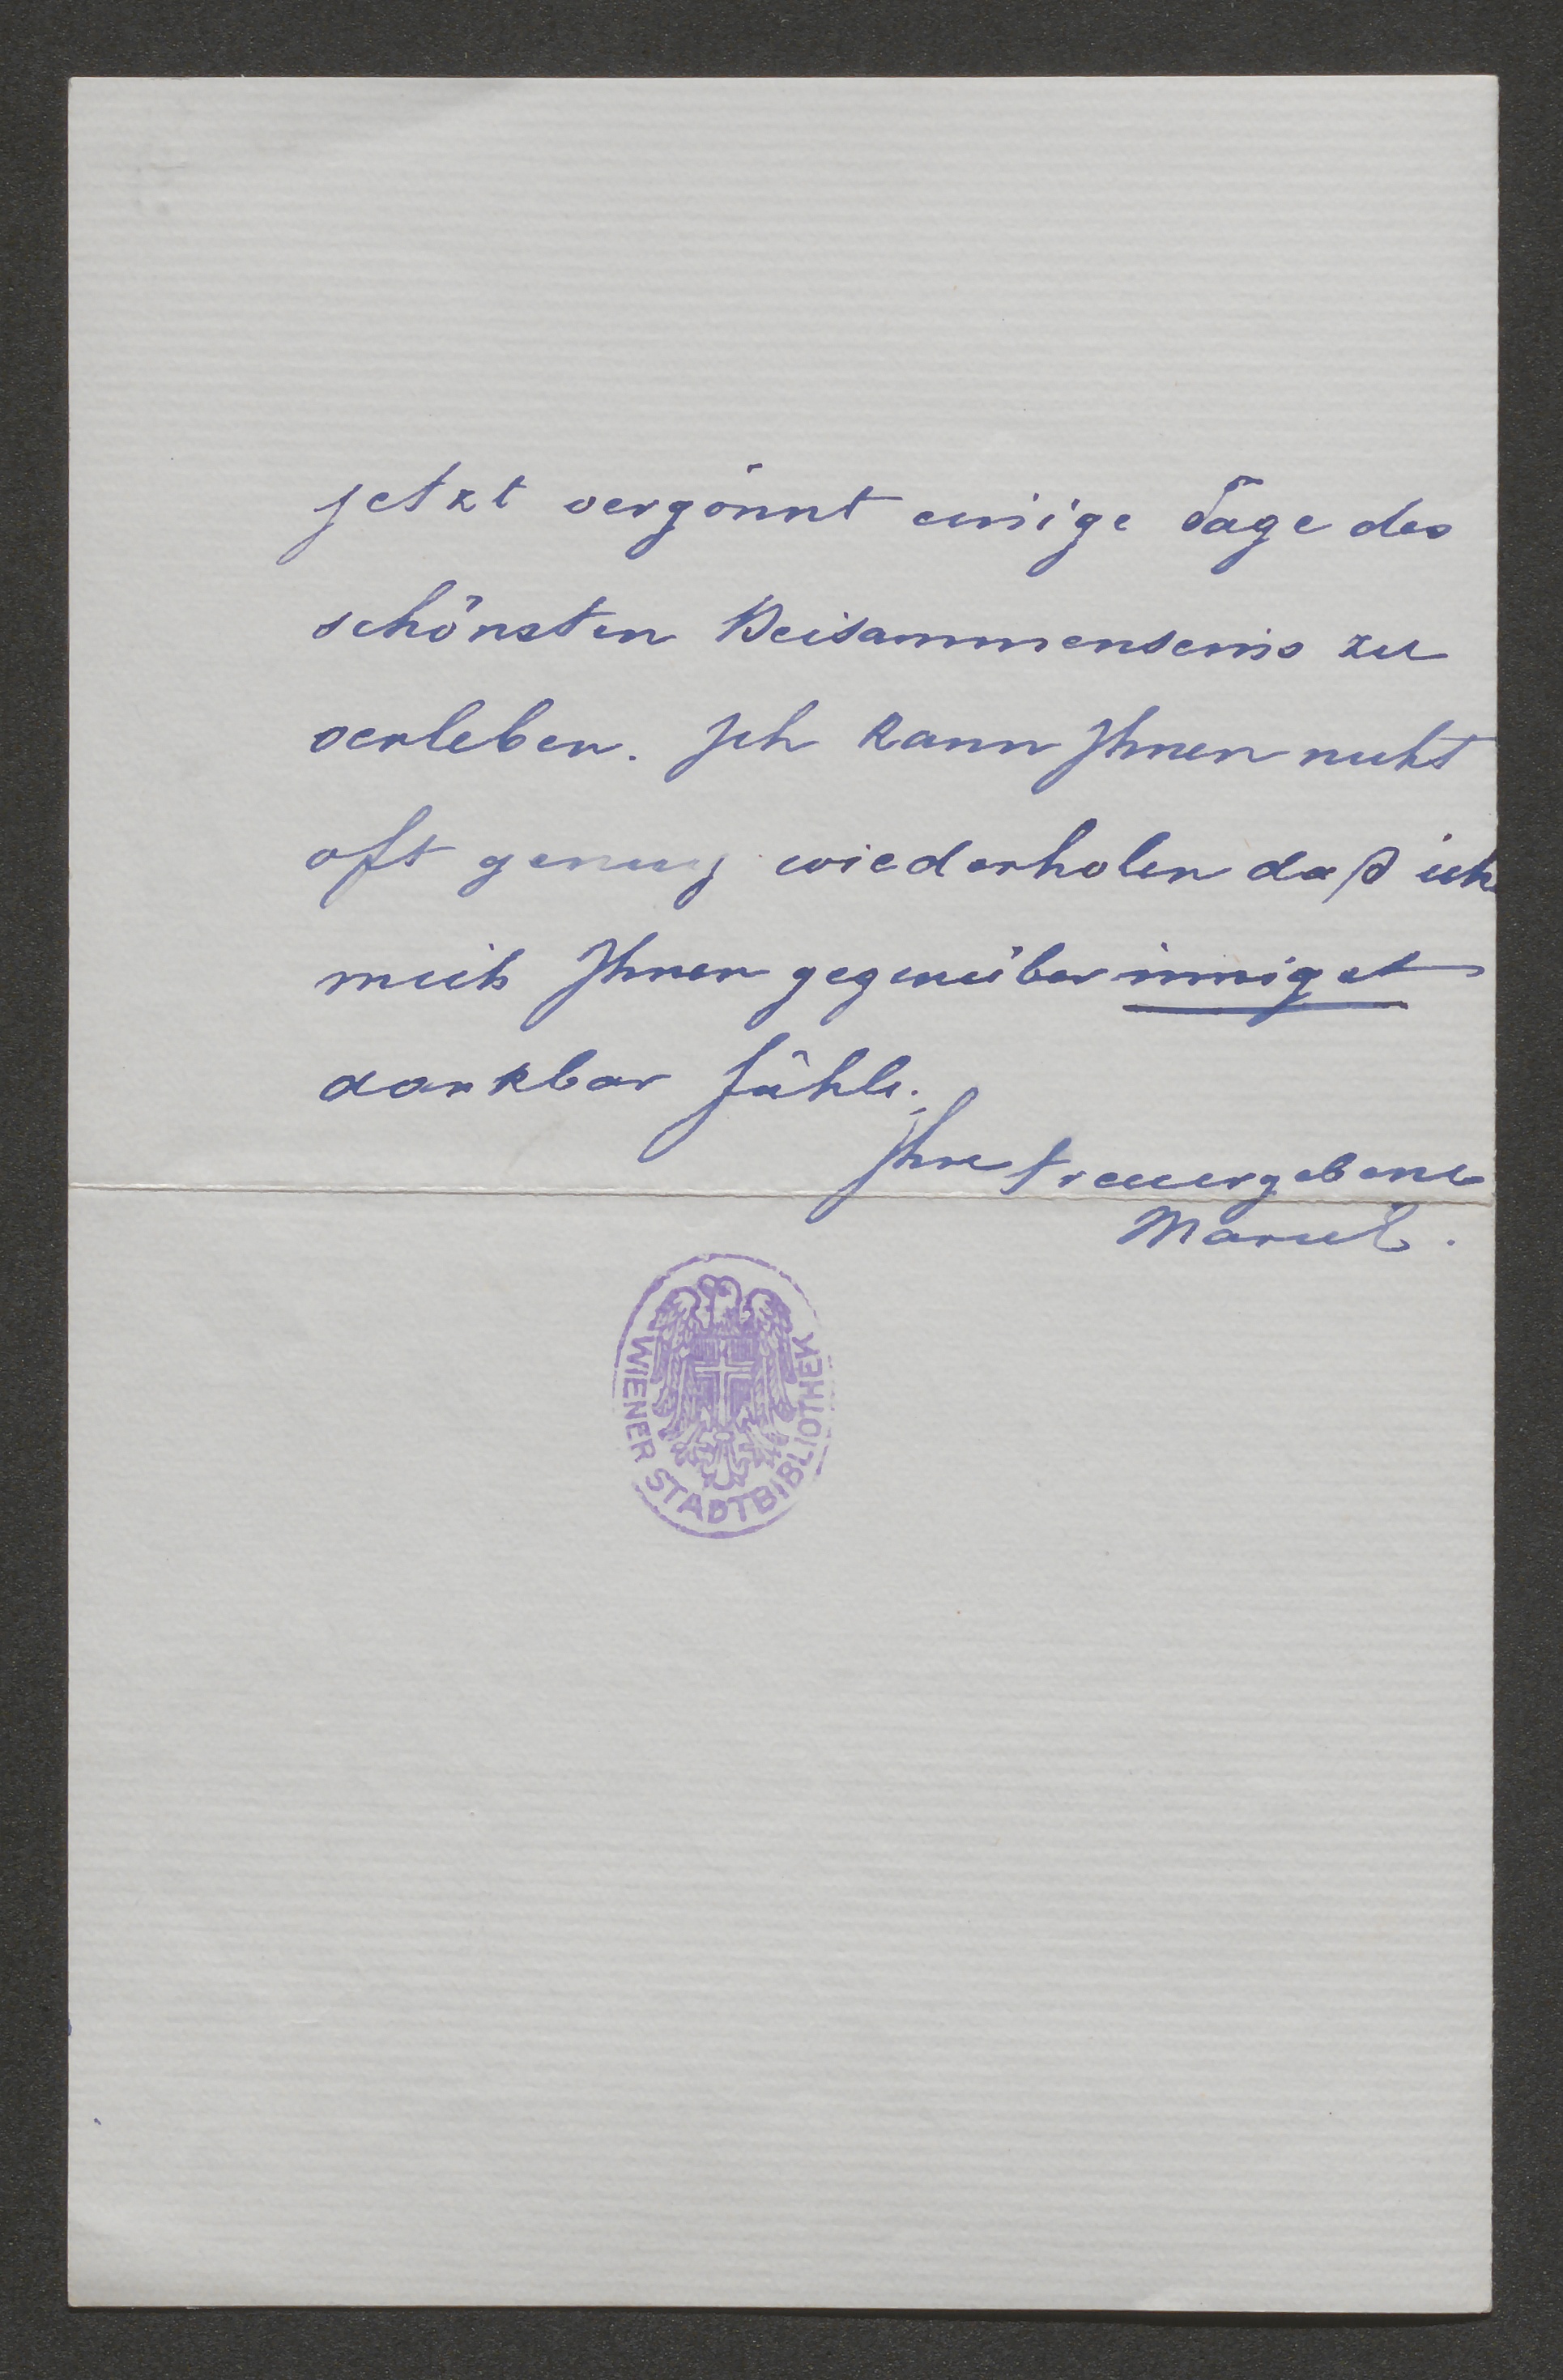 jetzt vergönnt einige Tage des
schönsten Beisammenseins zu
verleben. Ich kann Ihnen nicht
oft genug wiederholen daß ich
mich Ihnen gegenüber innigst
dankbar fühle.
Ihre treuergebene
WIENER STADTBIBLIOTHEK